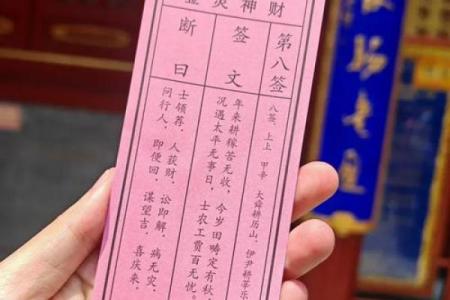 财神灵
第八签
八签。上上 甲辛 大舜耕历山。伊尹耕莘乐
签文
年来耕稼苦无收，今岁田畴定有秋。
况遇太平无事日，士农工贾百无忧。
断曰
士领荐，人获财，讼即解，病无灾，
问行人，即便回，谋望吉，喜庆来。